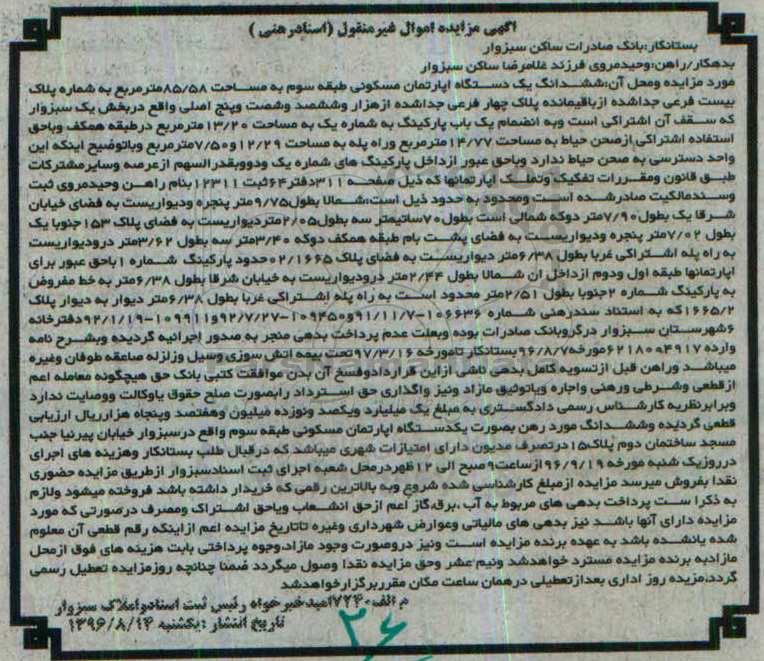 اگهی مزایده اموال غیرمنقول (اسنادرهنی)
بستانکار:بانک صادرات ساکن سبزوار
بدهکار/راهن:وحیدمروی فرزند غلامرضا ساکن سبزوار
مورد مزایده ومحل آن:ششدانگ یک دستگاه اپارتمان مسکونی طبقه سوم به مساحت ۸۵/۵۸مترمربع به شماره پلاک
بیست فرعی جداشده ازباقیمانده پلاک چهار فرعی جداشده ازهزار وششصد وشصت وپنج اصلی واقع دربخش یک سبزوار
که سقف آن اشتراکی است وبه انضمام یک باب پارکینگ به شماره یک به مساحت ۱۳/۲۰مترمربع درطبقه همکف وباحق
استفاده اشتراکی ازصحن حیاط به مساحت ۱۴/۷۷مترمربع وراه پله به مساحت ۱۲/۲۹و۷/۵۰مترمربع وباتوضیح اینکه این
واحد دسترسی به صحن حیاط ندارد وباحق عبور ازداخل پارکینگ های شماره یک ودووبقدرالسهم ازعرصه وسایرمشترکات
طبق قانون ومقررات تفکیک وتملک اپارتمانها که ذیل صفحه ۳۱۱دفتر۶۴ثبت ۱۲۳۱۱بنام راهن وحیدمروی ثبت
وسندمالکیت صادرشده است ومحدود به حدود ذیل است:شمالا بطول۹/۷۵متر پنجره ودیواریست به فضای خیابان
شرقا یک بطول۷/۹۰متر دوکه شمالی است بطول۷۰سانیمتر سه بطول۲/۰۵متردیواریست به فضای پلاک ۱۵۳جنوبا یک
بطول ۷/۰۲متر پنجره ودیواریست به فضای پشت بام طبقه همکف دوکه ۳/۴۰متر سه بطول ۳/۶۲متر درودیواریست
به راه پله اشتراکی غربا بطول ۶/۳۸متر دیواریست به فضای پلاک ۰۲/۱۶۶۵حدود پارکینگ شماره ۱باحق عبور برای
اپارتمانها طبقه اول ودوم ازداخل آن شمالا بطول ۲/۴۴متر درودیواریست به خیابان شرقا بطول ۶/۳۸متر به خط مفروض
به پارکینگ شماره ۲جنوبا بطول ۲/۵۱متر محدود است به راه پله اشتراکی غربا بطول ۶/۳۸متر دیوار به دیوار پلاک
۱۶۶۵/۲که به استناد سندرهنی شماره ۱۰۶۶۳۶-۹۱/۱۱/۷و۱۰۹۴۵۰-۹۲/۷/۲۷و۱۰۹۹۱۱-۹۲/۱/۱۹دفترخانه
۶شهرستان سبزوار درگروبانک صادرات بوده وبعلت عدم پرداخت بدهی منجر به صدور اجرائیه گردیده وبشرح نامه
وارده ۶۲۱۸۰۰۴۹۱۷مورخه۹۶/۸/۷بستانکار تامورخه ۹۷/۳/۱۶تحت بیمه اتش سوزی وسیل وزلزله صاعقه طوفان وغیره
میباشد وراهن قبل ازتسویه کامل بدهی ناشی ازاین قراردادوفسخ آن بدن موافقت کتبی بانک حق هیچگونه معامله اعم
ازقطعی وشرطی ورهنی واجاره ویاتوثیق مازاد ونیز واگذاری حق استرداد رابصورت صلح حقوق یاوکالت ووصایت ندارد
وبرابرنظریه کارشناس رسمی دادگستری به مبلغ یک میلیارد ویکصد ونوزده میلیون وهفتصد وپنجاه هزارریال ارزیابی
قطعی گردیده وششدانگ مورد رهن بصورت یکدستگاه اپارتمان مسکونی طبقه سوم واقع درسبزوار خیابان پیرنیا جنب
مسجد ساختمان دوم پلاک۱۵درتصرف مدیون دارای امتیازات شهری میباشد که درقبال طلب بستانکار وهزینه های اجرای
درروزیک شنبه مورخه ۹۶/۹/۱۹ازساعت۹صبح الی ۱۲ظهردرمحل شعبه اجرای ثبت اسنادسبزوار ازطریق مزایده حضوری
نقدا بفروش میرسد مزایده ازمبلغ کارشناسی شده شروع وبه بالاترین رقمی که خریدار داشته باشد فروخته میشود ولازم
به ذکرا ست پرداخت بدهی های مربوط به آب ،برق،گاز اعم ازحق انشعاب ویاحق اشتراک ومصرف درصورتی که مورد
مزایده دارای آنها باشد نیز بدهی های مالیاتی وعوارض شهرداری وغیره تاتاریخ مزایده اعم ازاینکه رقم قطعی آن معلوم
شده یانشده باشد به عهده برنده مزایده است ونیز دروصورت وجود مازاد،وجوه پرداختی بابت هزینه های فوق ازمحل
مازادبه برنده مزایده مسترد خواهدشد ونیم عشر وحق مزایده نقدا وصول میگردد ضمنا چنانچه روزمزایده تعطیل رسمی
گردد،مزیده روز اداری بعدازتعطیلی درهمان ساعت مکان مقرربرگزارخواهدشد
م الف:۷۲۴۰امیدخیرخواه رئیس ثبت اسنادواملاک سبزوار
تاریخ انتشار :یکشنبه ۱۳۹۶/۸/۱۴
۲۶